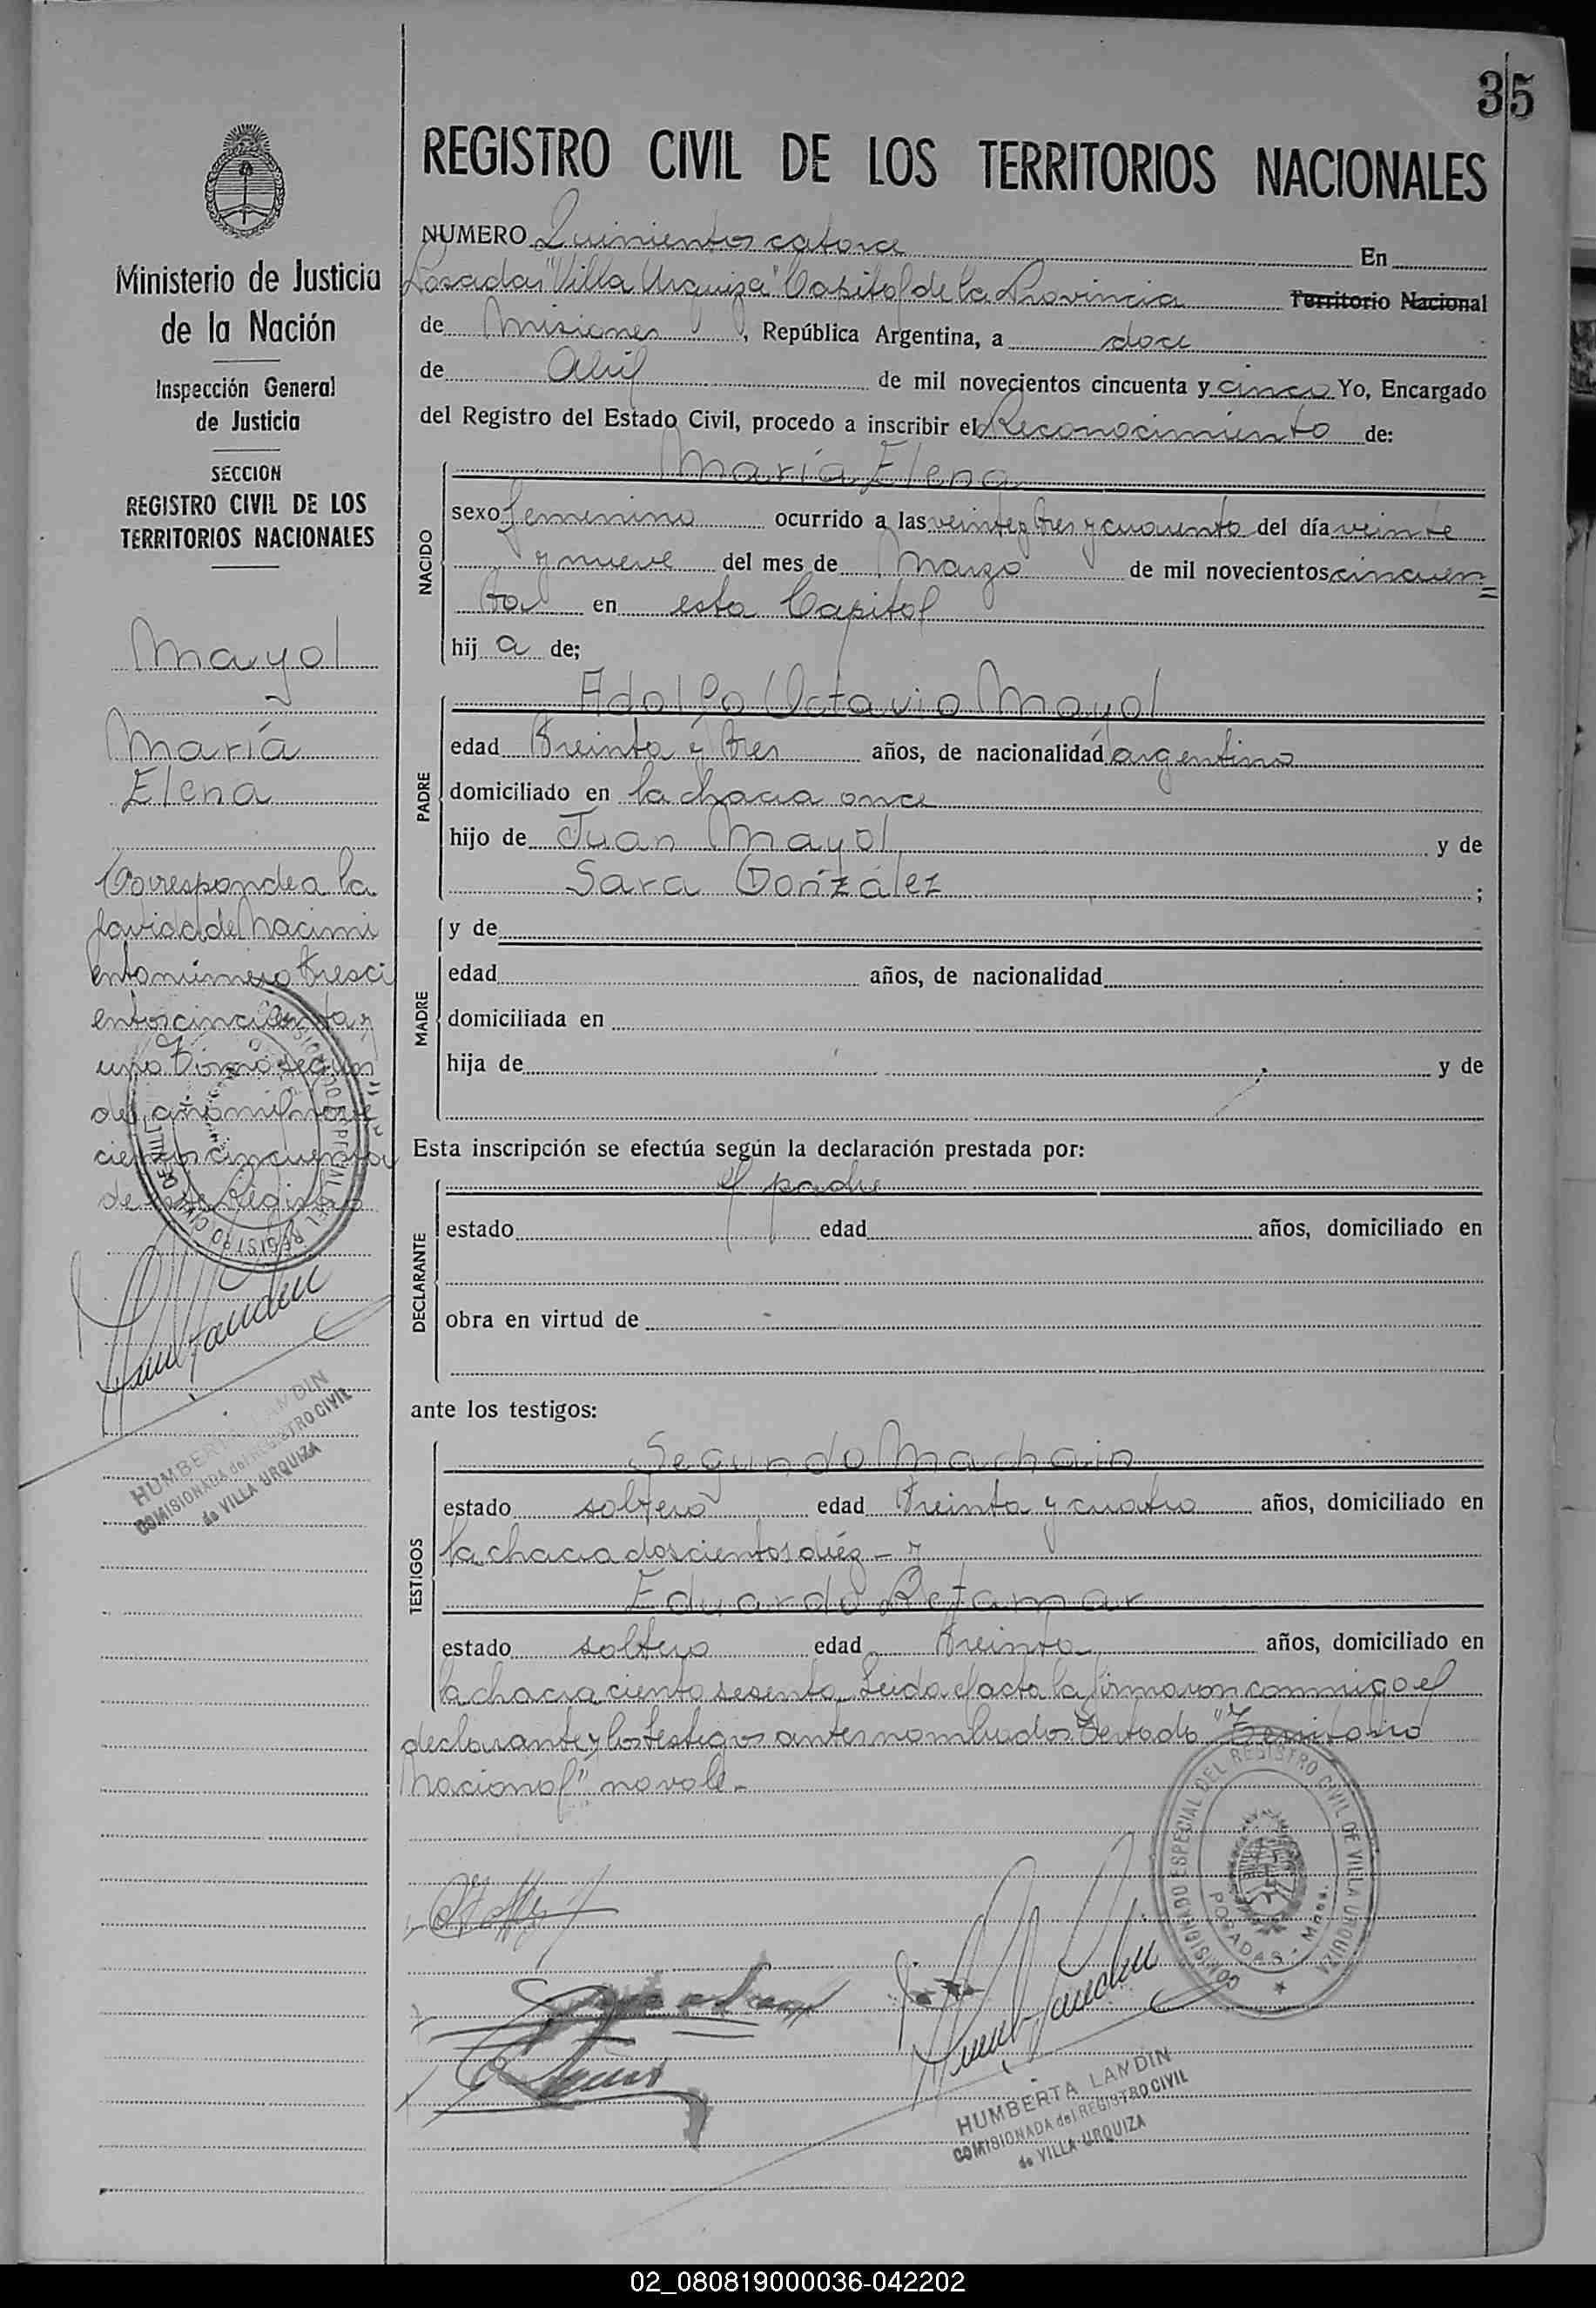 35
REGISTRO CIVIL DE LOS TERRITORIOS NACIONALES
Ministerio de Justicia
de la Nación
Inspección General
de Justicia
SECCION
REGISTRO CIVIL DE LOS
TERRITORIOS NACIONALES
Mayol
María
Elena
Corresponde a la
de Nacimi
ento número tresci
entos cincuenta y
uno Tomo segun
del año mil nove
cientos cincuenta
de este Registro
COMISIONADO ESPECIAL DEL REGISTRO CIVIL DE VILLA
HUMBERTA LANDIN
COMISIONADA del REGISTRO CIVIL
de VILLA URQUIZA
NUMERO Quinientos catorce En
Posadas "Villa Urquiza" Capital de la Provincia Territorio Nacional
de Misiones, República Argentina, a doce
de Abril de mil novecientos cincuenta y cinco Yo, Encargado
del Registro del Estado Civil, procedo a inscribir el Reconocimiento de:
NACIDO
María Elena
sexo femenino ocurrido a las veinte y tres y cuarenta del día veinte
y nueve del mes de Marzo de mil novecientos cincuen=
ta en esta Capital
hij a de;
PADRE
Adolfo Octavio Mayol
edad treinta y tres años, de nacionalidad argentino
domiciliado en la chacra once
hijo de Juan Mayol y de
Sara González ;
MADRE
y de
edad años, de nacionalidad
domiciliada en
hija de y de
Esta inscripción se efectúa según la declaración prestada por:
DECLARANTE
el padre
estado edad años, domiciliado en
obra en virtud de
ante los testigos:
TESTIGOS
Segundo Machain
estado soltero edad treinta y cuatro años, domiciliado en
la chacra doscientos diéz - y
Eduardo Retamar
estado soltero edad treinta años, domiciliado en
la chacra ciento sesenta. Leida el acta la firmaron conmigo el
declarante y los testigos antes nombrados. Testado "Territorio
Nacional" no vale.-
COMISIONADO ESPECIAL DEL REGISTRO CIVIL DE VILLA URQUIZA
POSADAS - Mnes.
HUMBERTA LANDIN
COMISIONADA del REGISTRO CIVIL
de VILLA URQUIZA
02_080819000036-042202